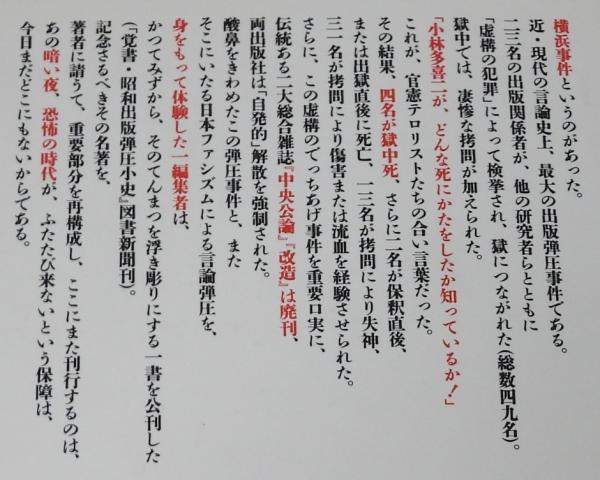 横浜事件というのがあった。
近・現代の言論史上、最大の出版弾圧事件である。
二三名の出版関係者が、他の研究者らとともに
「虚構の犯罪」によって検挙され、獄につながれた(総数四九名)。
獄中では、凄惨な拷問が加えられた。
「小林多喜二が、どんな死にかたをしたか知っているか!」
これが、官憲テロリストたちの合い言葉だった。
その結果、四名が獄中死、さらに二名が保釈直後、
または出獄直後に死亡、一三名が拷問により失神、
三一名が拷問により傷害または流血を経験させられた。
さらに、この虚構のでっちあげ事件を重要口実に、
伝統ある二大総合雑誌『中央公論』『改造』は廃刊、
両出版社は「自発的」解散を強制された。
酸鼻をきわめたこの弾圧事件と、また
そこにいたる日本ファシズムによる言論弾圧を、
身をもって体験した一編集者は、
かつてみずから、そのてんまつを浮き彫りにする一書を公刊した
(『覚書・昭和出版弾圧小史』図書新聞刊)。
記念さるべきその名著を、
著者に請うて、重要部分を再構成し、ここにまた刊行するのは、
あの暗い夜、恐怖の時代が、ふたたび来ないという保障は、
今日まだどこにもないからである。